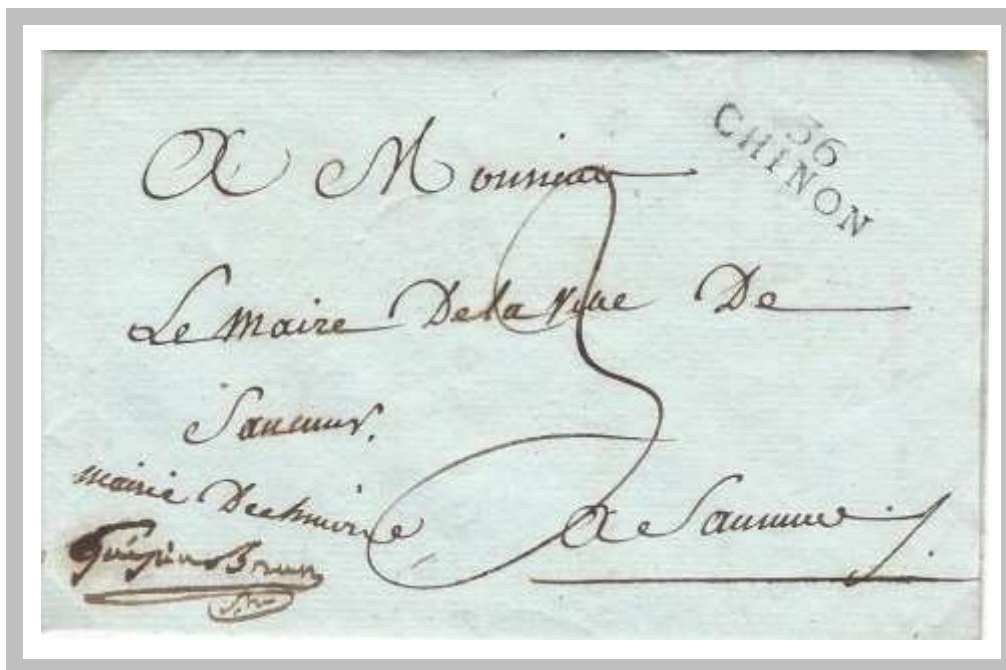 36
CHINON
A Monsieur
Le Maire De la Ville De
Saumur.
mairie De chinon
A Saumur
3